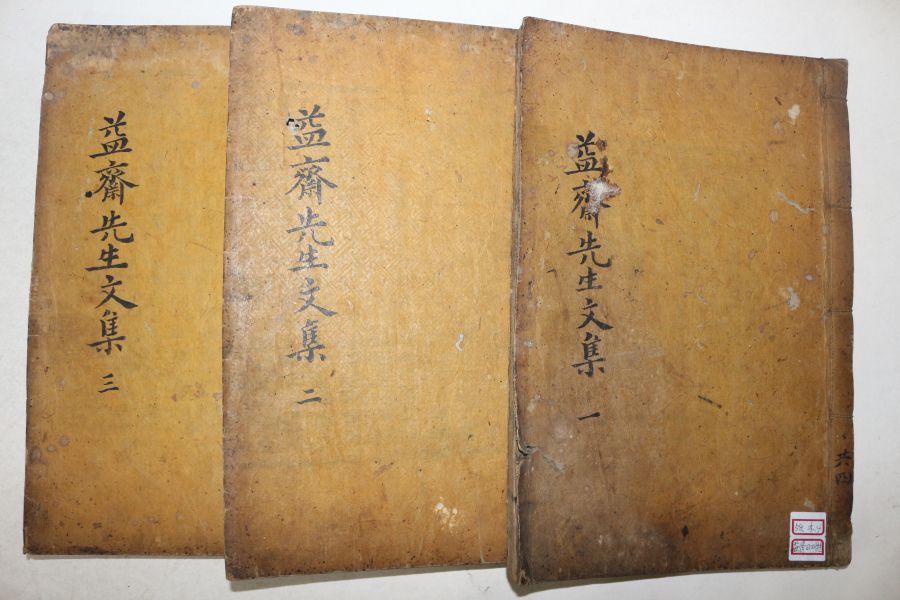 益齋先生文集 一
共四
益齋先生文集 二
益齋先生文集 三